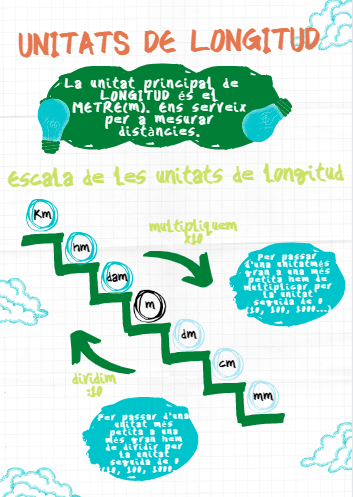 UNITATS DE LONGITUD
La unitat principal de
LONGITUD és el
METRE(m). Ens serveix
per a mesurar
distàncies.
Escala de les unitats de longitud
Km
hm
dam
m
dm
cm
mm
multipliquem
x10
Per passar
d'una unitatmés
gran a una més
petita hem de
multiplicar per
la unitat
seguida de 0
(10, 100, 1000...)
dividim
:10
Per passar d'una
unitat més
petita a una
més gran hem
de dividir per
la unitat
seguida de 0
(10, 100, 1000...)